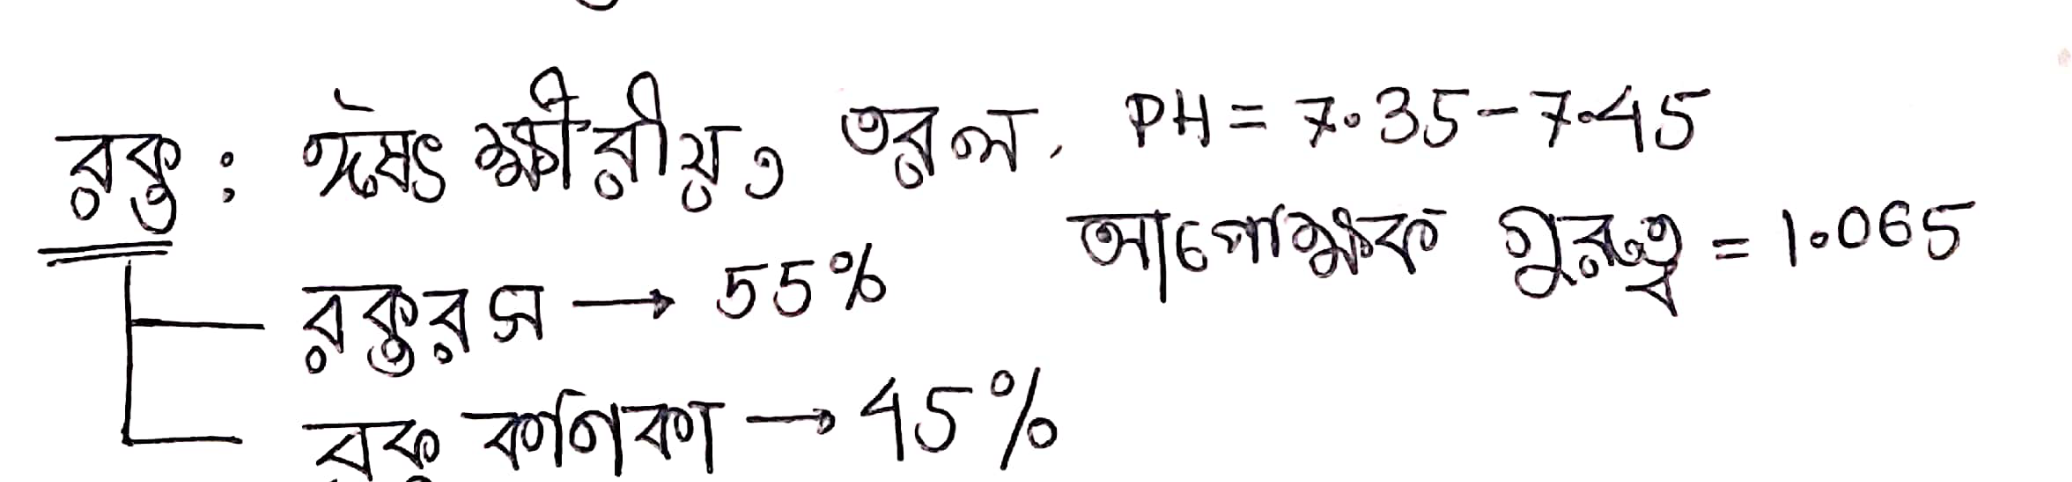 রক্ত : ঈষৎ ক্ষারীয়, তরল, PH = 7.35-7.45
আপেক্ষিক গুরুত্ব = 1.065
রক্তরস → 55%
রক্ত কণিকা → 45%